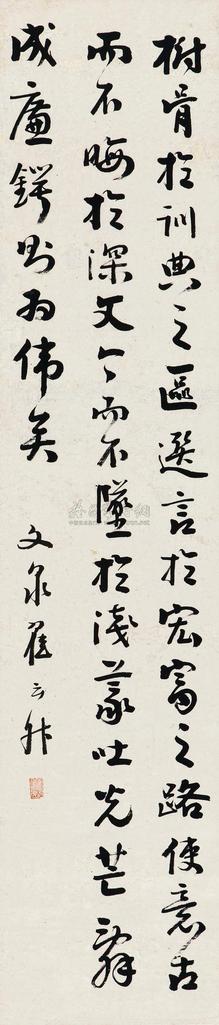 树骨於训典之區選言於宏富之路使意古
而不晦於深文今而不墜於淺義吐光芒辭
成廉鍔則為伟矣
文泉翟云升